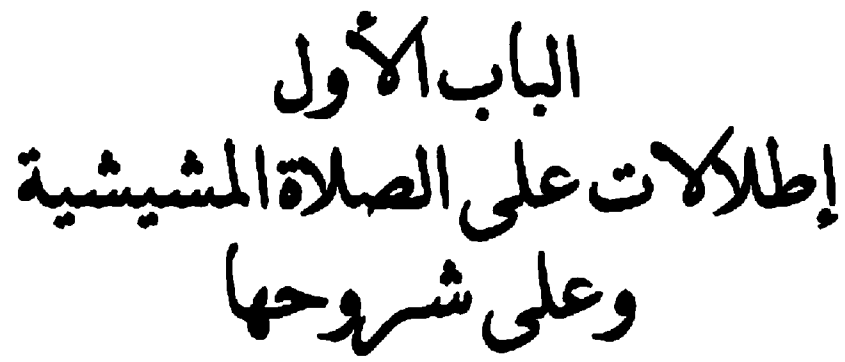 الباب الأول
إطلالات على الصلاة المشيشية
وعلى شروحها